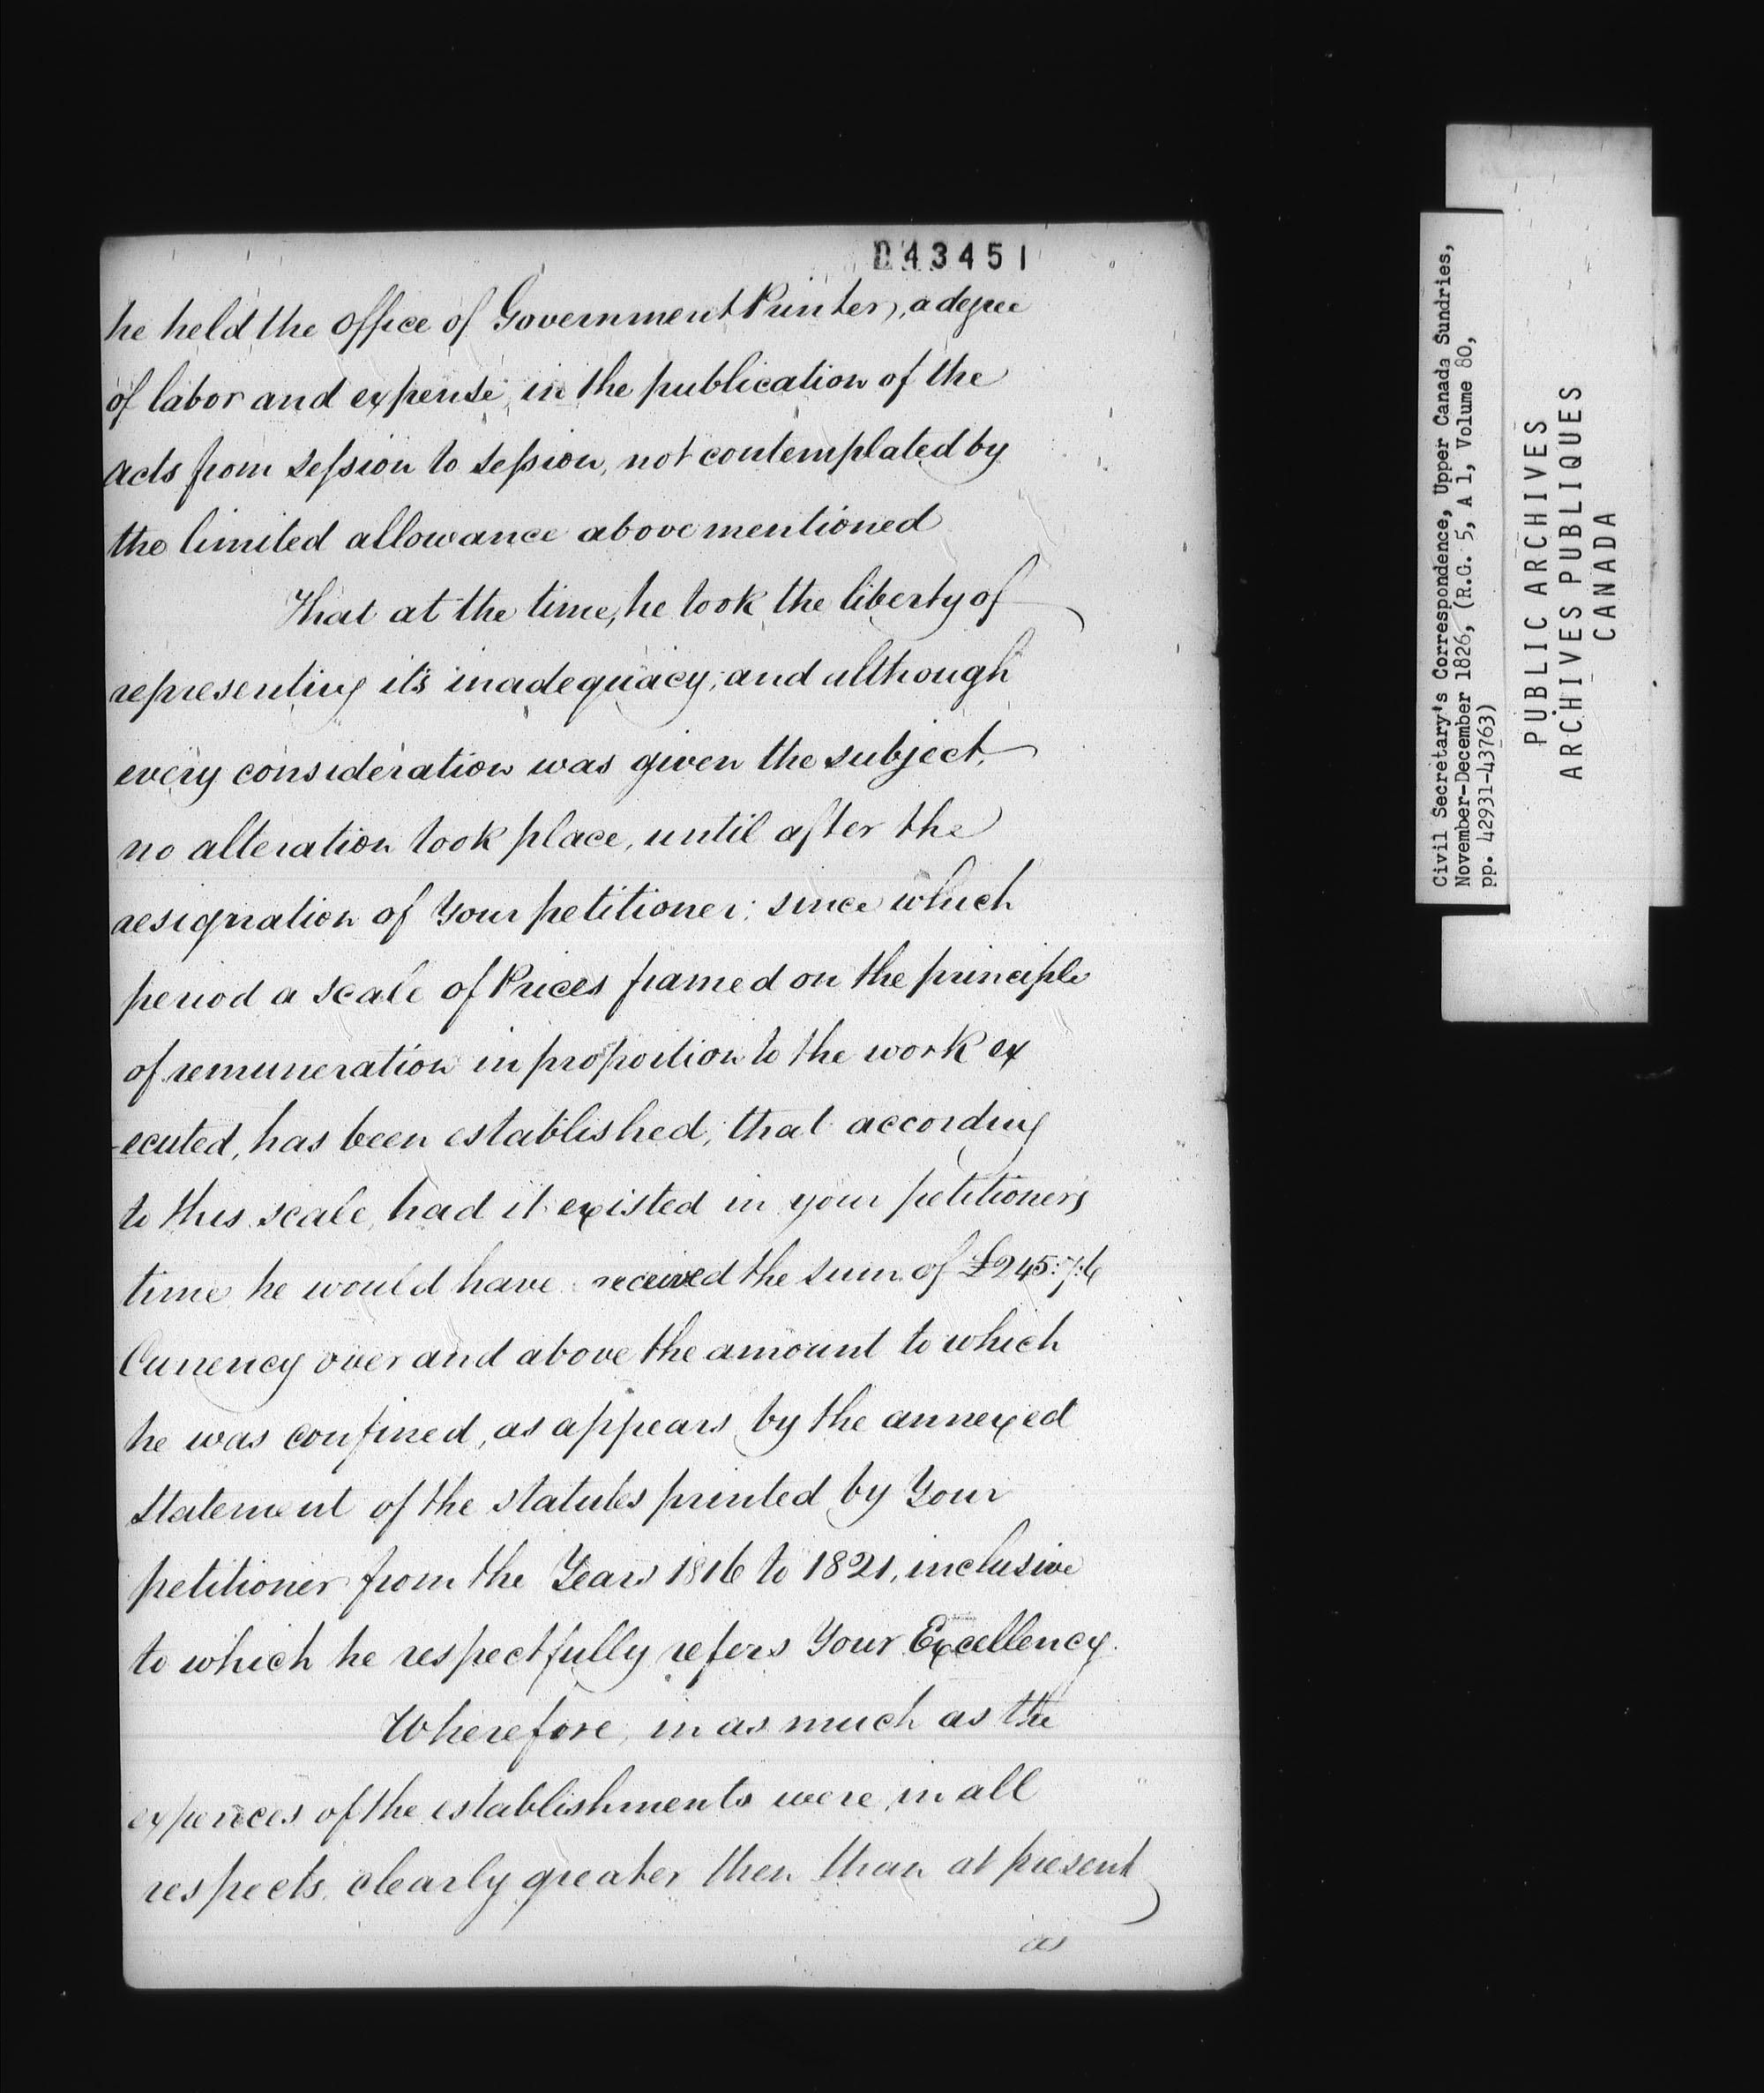 043451
he held the office of Government Printer, a degree
of labor and expense, in the publication of the
acts from session to session, not contemplated by
the limited allowance above mentioned
That at the time, he took the liberty of
representing it's inadequacy; and although
every consideration was given the subject,
no alteration took place, until after the
resignation of Your petitioner: since which
period a scale of Prices framed on the principle
of remuneration in proportion to the work ex
-ecuted, has been established; that according
to this scale, had it existed in your petitioners
time he would have received the sum of £245:7:6
Currency over and above the amount to which
he was confined, as appears by the annexed
Statement of the statutes printed by Your
petitioner from the Years 1816 to 1821, inclusive
to which he respectfully refers Your Excellency.
Wherefore, in as much as the
expences of the establishments were, in all
respects, clearly greater then than at present
as
Civil Secretary's Correspondence, Upper Canada Sundries,
November-December 1826, (R.G. 5, A 1, Volume 80,
pp. 42931-43763)
PUBLIC ARCHIVES
ARCHIVES PUBLIQUES
CANADA